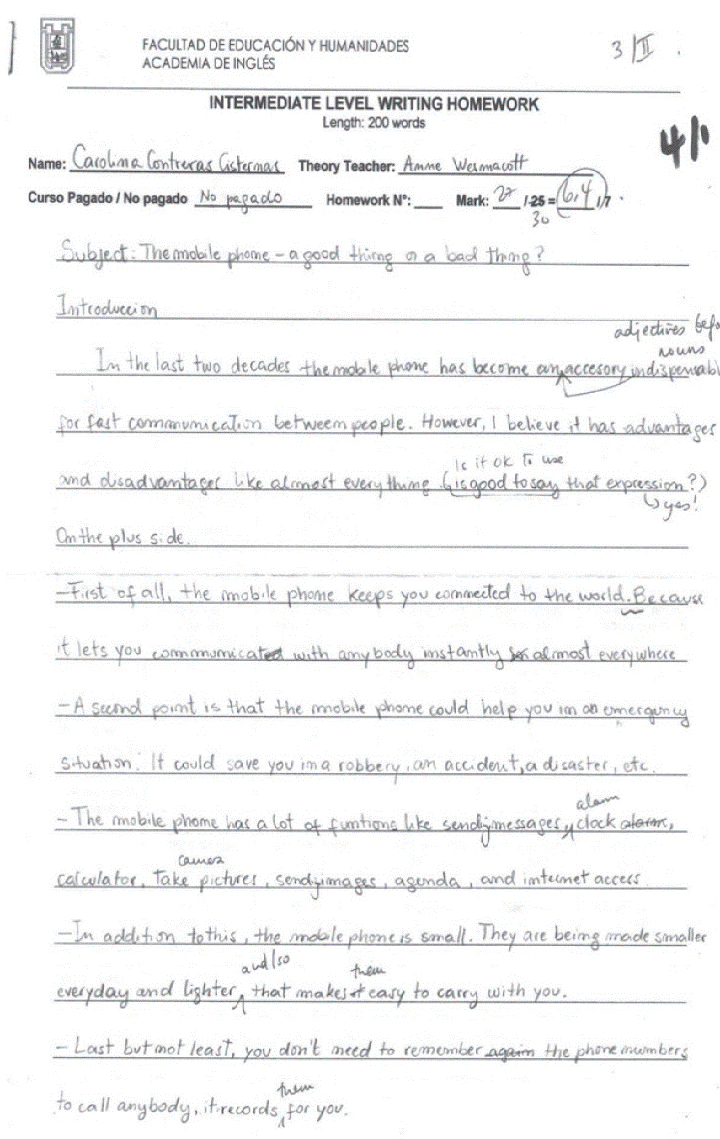 FACULTAD DE EDUCACIÓN Y HUMANIDADES
3/II.
ACADEMIA DE INGLÉS
INTERMEDIATE LEVEL WRITING HOMEWORK
Length: 200 words
Name: Carolina Contreras Cisternas Theory Teacher: Anne Wesmacott
Curso Pagado / No pagado No pagado Homework N°: ___ Mark: 27 /25 = 6,4 /7.
30
Subject: The mobile phone - a good thing or a bad thing?
Introduccion
adjectives befo
nouns
In the last two decades the mobile phone has become an accesory indispensabl
for fast communication between people. However, I believe it has advantages
Is it ok to use
and disadvantages like almost everything (is good to say that expression?)
↳ yes!
On the plus side.
-First of all, the mobile phone keeps you connected to the world. Because
it lets you communicated with anybody instantly almost everywhere
-A second point is that the mobile phone could help you in an emergency
situation. It could save you in a robbery, an accident, a disaster, etc.
alarm
- The mobile phone has a lot of funtions like sending messages, clock alarm,
camera
calculator, take pictures, sending images, agenda, and internet access.
-In addition to this, the mobile phone is small. They are being made smaller
and/so them
everyday and lighter, that makes it easy to carry with you.
- Last but not least, you don't need to remember again the phone numbers
them
to call anybody, it records for you.